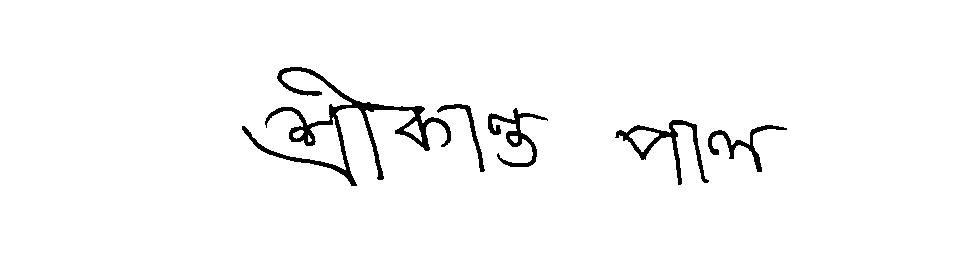 শ্রীকান্ত পাল